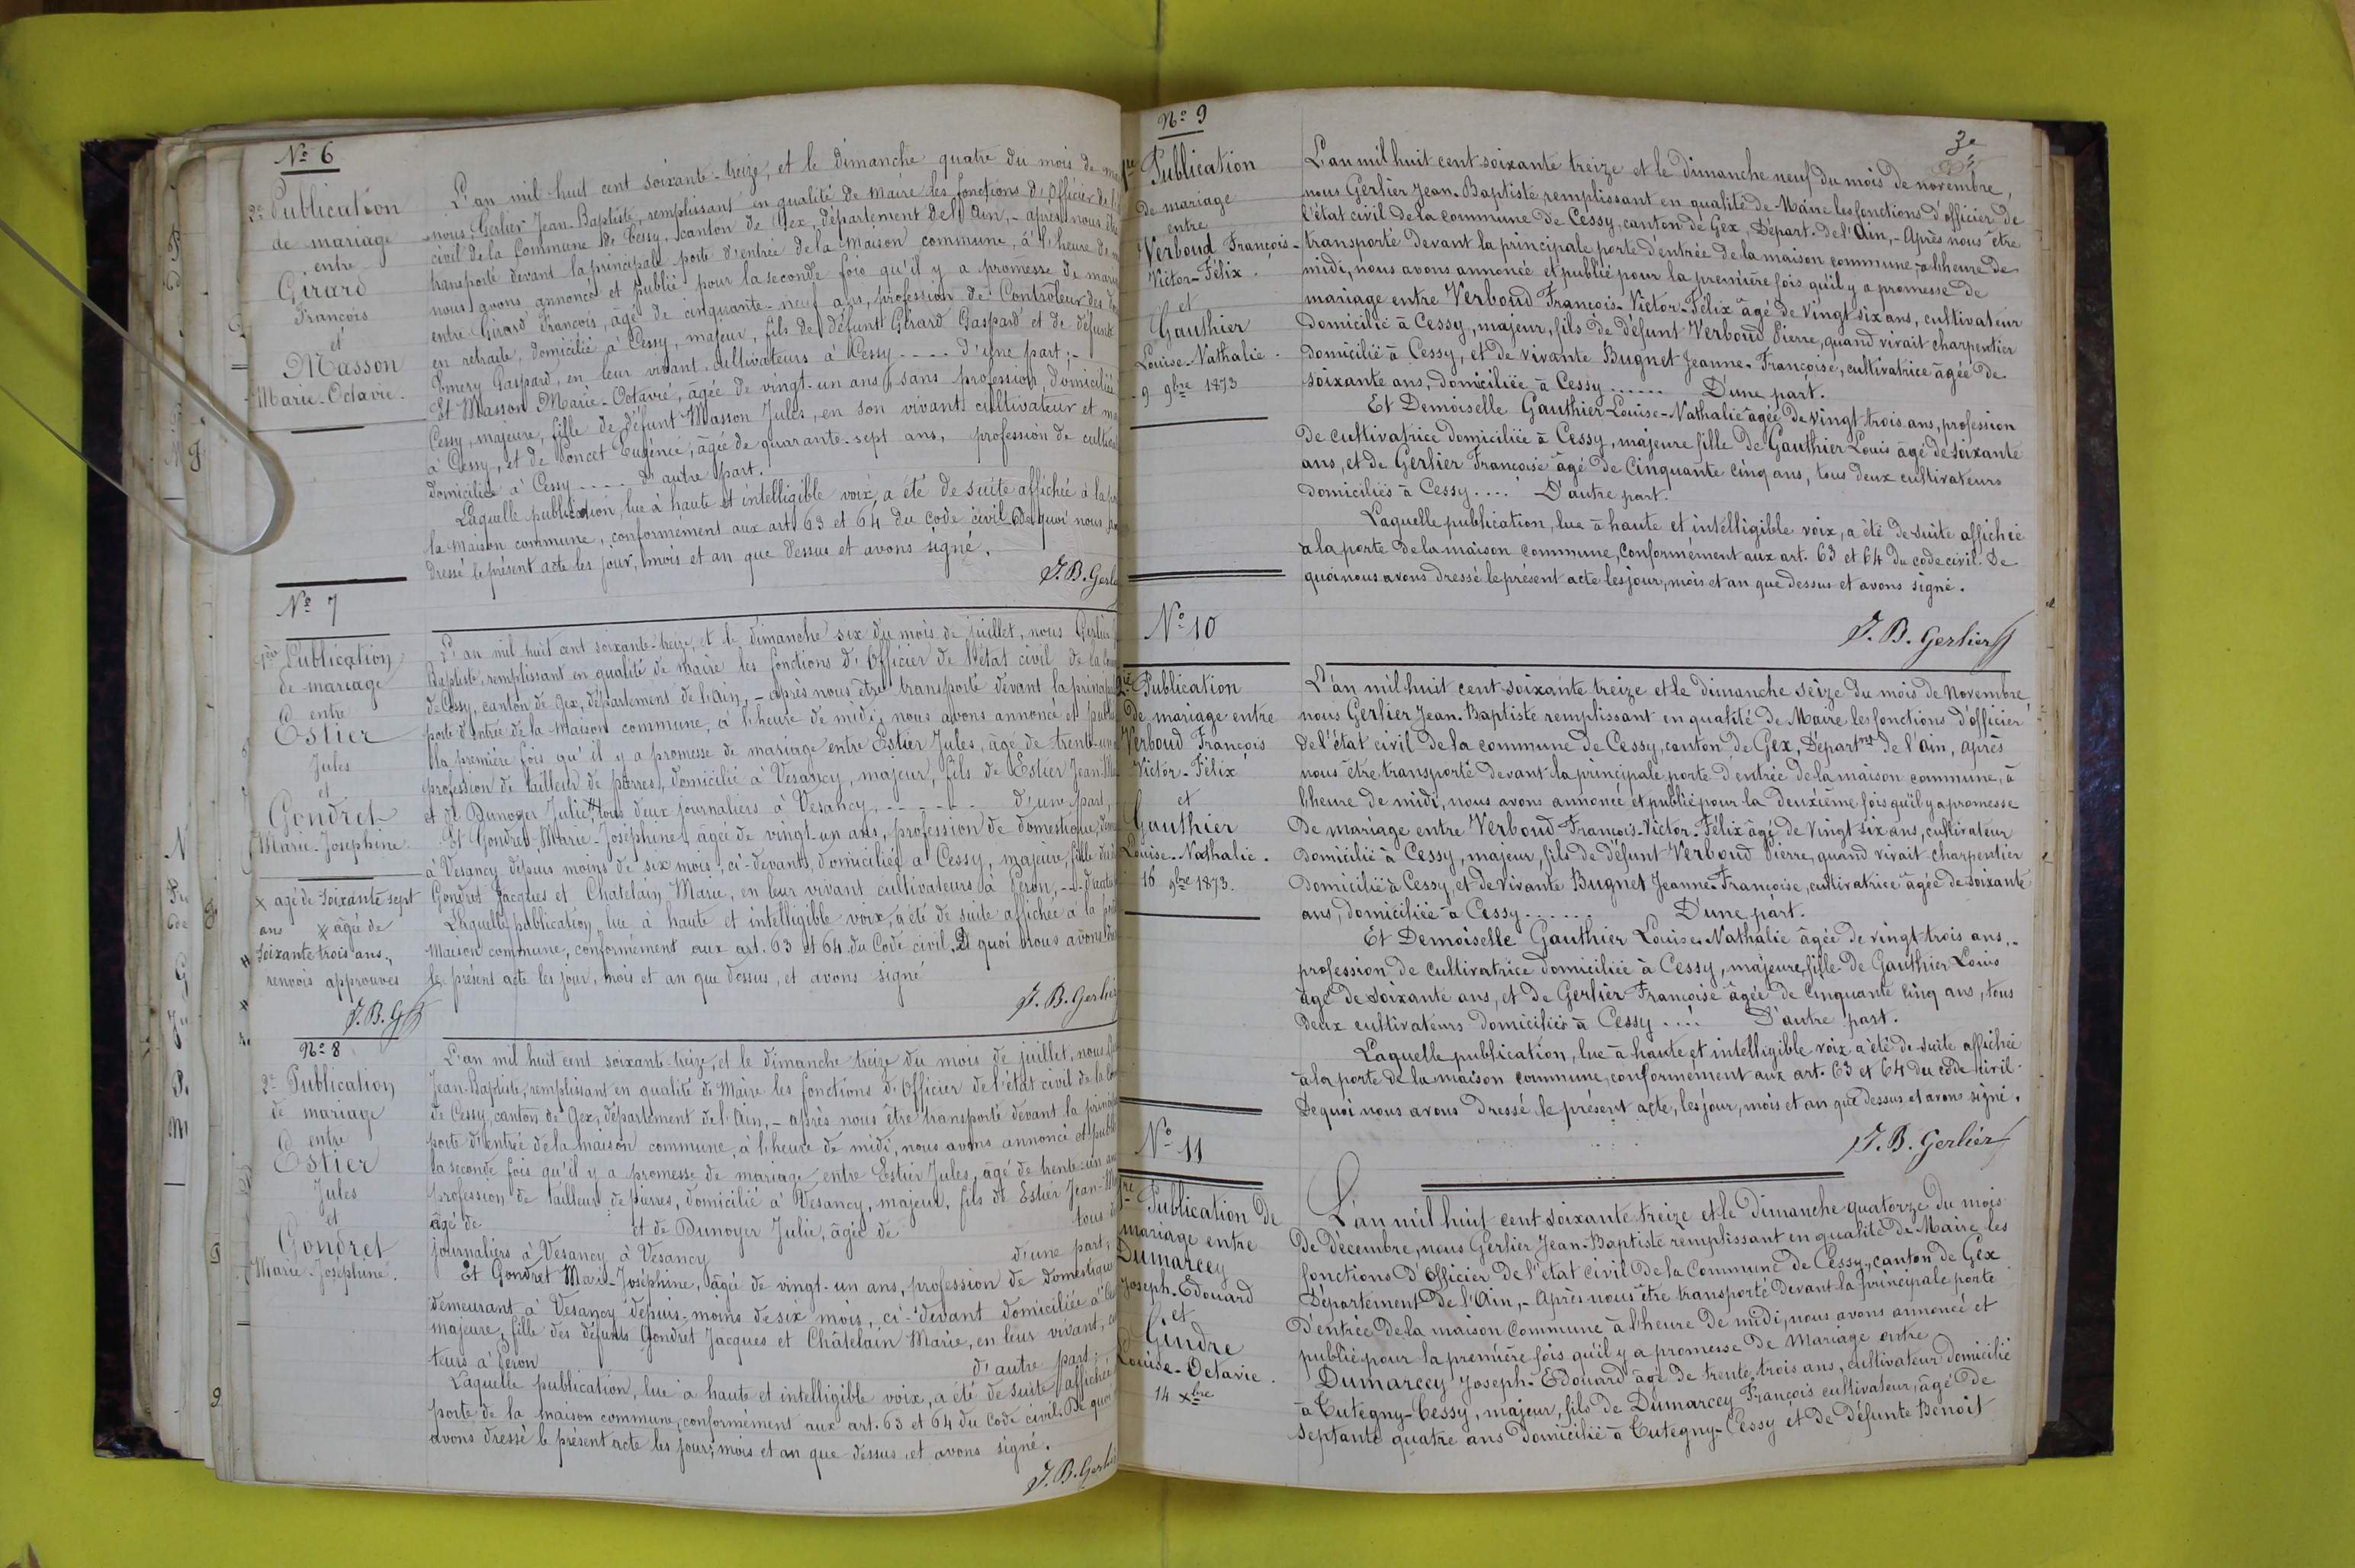 Nº 6
2e Publication
de mariage
entre
Girard
François
et
Masson
Marie-Octavie.
L'an mil huit cent soixante-treize, et le dimanche quatre du mois de
nous, Gerlier Jean-Baptiste, remplissant en qualité de maire les fonctions d'Officier de
civil de la Commune de Cessy, canton de Gex, département de l'Ain, - après nous
transporté devant la principale porte d'entrée de la maison commune, à l'heure de
nous avons annoncé et publié pour la seconde fois qu'il y a promesse de
entre Girard François, âgé de cinquante-neuf ans, profession de Contrôleur des
en retraite, domicilié à Cessy, majeur, fils de défunt Girard Gaspard et de défunte
Gaspard, en leur vivant cultivateurs à Cessy - - - - d'une part; -
Et Masson Marie-Octavie, âgée de vingt-un ans, sans profession, domiciliée
Cessy, majeure, fille de défunt Masson Jules, en son vivant cultivateur et
à Cessy, et de Poncet Eugénie, âgée de quarante-sept ans, profession de
domiciliée à Cessy - - - - d'autre part.
Laquelle publication, lue à haute et intelligible voix, a été de suite affichée à la
la maison commune, conformément aux art. 63 et 64 du code civil. De quoi nous
dressé le présent acte les jour, mois et an que dessus et avons signé.
J. B. Gerl
Nº 7
1ère Publication
de mariage
entre
Estier
Jules
et
Gondret
Marie-Joséphine.
x âgé de soixante sept
ans x âgée de
soixante trois ans.,
renvois approuvés
J. B. G
L'an mil huit cent soixante-treize, et le dimanche six du mois de juillet, nous Gerlier
Baptiste, remplissant en qualité de maire les fonctions d'Officier de l'état civil de la
de Cessy, canton de Gex, département de l'Ain, - après nous être transporté devant la
porte d'entrée de la maison commune, à l'heure de midi, nous avons annoncé et
la première fois qu'il y a promesse de mariage entre Estier Jules, âgé de trente-un
profession de tailleur de pierres, domicilié à Vesancy, majeur, fils de Estier Jean
et de Dunoyer Julie, tous deux journaliers à Vesancy, - - - - - d'une part,
Et Gondret Marie-Joséphine, âgée de vingt-un ans, profession de domestique,
à Vesancy depuis moins de six mois, ci-devant, domiciliée à Cessy, majeure, fille
Gondret Jacques et Châtelain Marie, en leur vivant cultivateurs à Péron, - -
Laquelle publication, lue à haute et intelligible voix, a été de suite affichée à la
maison commune, conformément aux art. 63 et 64 du Code civil. De quoi nous avons
le présent acte les jour, mois et an que dessus, et avons signé
J. B. Gerlier
Nº 8
2e Publication
de mariage
entre
Estier
Jules
et
Gondret
Marie-Joséphine.
L'an mil huit cent soixante-treize, et le dimanche treize du mois de juillet, nous
Jean-Baptiste, remplissant en qualité de Maire les fonctions d'Officier de l'état civil de la
de Cessy, canton de Gex, département de l'Ain, - après nous être transporté devant la
porte d'entrée de la maison commune, à l'heure de midi, nous avons annoncé et
la seconde fois qu'il y a promesse de mariage entre Estier Jules, âgé de trente-un
profession de tailleur de pierres, domicilié à Vesancy, majeur, fils de Estier Jean
âgé de et de Dunoyer Julie, âgée de tous
journaliers à Vesancy à Vesancy d'une part;
Et Gondret Marie-Joséphine, âgée de vingt-un ans, profession de domestique
demeurant à Vesancy depuis moins de six mois, ci-devant domiciliée à
majeure, fille des défunts Gondret Jacques et Châtelain Marie, en leur vivant,
teurs à Péron d'autre part.
Laquelle publication, lue à haute et intelligible voix, a été de suite affichée
porte de la maison commune, conformément aux art. 63 et 64 du Code civil. De quoi
avons dressé le présent acte les jour, mois et an que dessus, et avons signé.
J. B. Gerl
3e
Nº 9
1re Publication
de mariage
entre
Verboud François-
Victor-Félix.
et
Gauthier
Louise-Nathalie.
9 9bre 1873
L'an mil huit cent soixante treize et le dimanche neuf du mois de novembre,
nous Gerlier Jean-Baptiste remplissant en qualité de Maire les fonctions d'officier de
l'état civil de la commune de Cessy, canton de Gex, Départ. de l'Ain, - Après nous être
transporté devant la principale porte d'entrée de la maison commune, à l'heure de
midi, nous avons annoncé et publié pour la première fois qu'il y a promesse de
mariage entre Verboud François-Victor-Félix âgé de vingt six ans, cultivateur
domicilié à Cessy, majeur, fils de défunt Verboud Pierre, quand vivait charpentier
domicilié à Cessy, et de vivante Bugnet Jeanne-Françoise, cultivatrice âgée de
soixante ans, domiciliée à Cessy...... D'une part.
Et Demoiselle Gauthier Louise-Nathalie âgée de vingt trois ans, profession
de cultivatrice domiciliée à Cessy, majeure fille de Gauthier Louis âgé de soixante
ans, et de Gerlier Françoise âgé de Cinquante cinq ans, tous deux cultivateurs
domiciliés à Cessy.... D'autre part.
Laquelle publication, lue à haute et intelligible voix, a été de suite affichée
à la porte de la maison commune, conformément aux art. 63 et 64 du code civil. De
quoi nous avons dressé le présent acte les jour, mois et an que dessus et avons signé.
J. B. Gerlier
Nº 10
2e Publication
de mariage entre
Verboud François
Victor-Félix
et
Gauthier
Louise-Nathalie.
16 9bre 1873.
L'an mil huit cent soixante treize et le dimanche seize du mois de novembre
nous Gerlier Jean-Baptiste remplissant en qualité de Maire les fonctions d'officier
de l'état civil de la commune de Cessy, canton de Gex, Départmt de l'Ain, après
nous être transporté devant la principale porte d'entrée de la maison commune, à
l'heure de midi, nous avons annoncé et publié pour la deuxième fois qu'il y a promesse
de mariage entre Verboud François-Victor-Félix âgé de vingt six ans, cultivateur
domicilié à Cessy, majeur, fils de défunt Verboud Pierre, quand vivait charpentier
domicilié à Cessy, et de vivante Bugnet Jeanne-Françoise, cultivatrice âgée de soixante
ans, domiciliée à Cessy...... D'une part.
Et Demoiselle Gauthier Louise-Nathalie âgée de vingt trois ans,
profession de cultivatrice domiciliée à Cessy, majeure fille de Gauthier Louis
âgé de soixante ans, et de Gerlier Françoise âgée de cinquante cinq ans, tous
deux cultivateurs domiciliés à Cessy.... D'autre part.
Laquelle publication, lue à haute et intelligible voix a été de suite affichée
à la porte de la maison commune, conformément aux art. 63 et 64 du code civil.
De quoi nous avons dressé le présent acte, les jour, mois et an que dessus et avons signé.
J. B. Gerlier
Nº 11
1re Publication de
mariage entre
Dumarcey
Joseph-Edouard
et
Gindre
Louise-Octavie.
14 xbre
L'an mil huit cent soixante treize et le dimanche quatorze du mois
de décembre, nous Gerlier Jean-Baptiste remplissant en qualité de Maire les
fonctions d'Officier de l'état civil de la Commune de Cessy, canton de Gex
Département de l'Ain, - Après nous être transporté devant la principale porte
d'entrée de la maison Commune à l'heure de midi, nous avons annoncé et
publié pour la première fois qu'il y a promesse de Mariage entre
Dumarcey Joseph-Edouard âgé de trente trois ans, cultivateur domicilié
à Tutegny-Cessy, majeur, fils de Dumarcey François cultivateur, âgé de
septante quatre ans domicilié à Tutegny-Cessy et de défunte Benoit